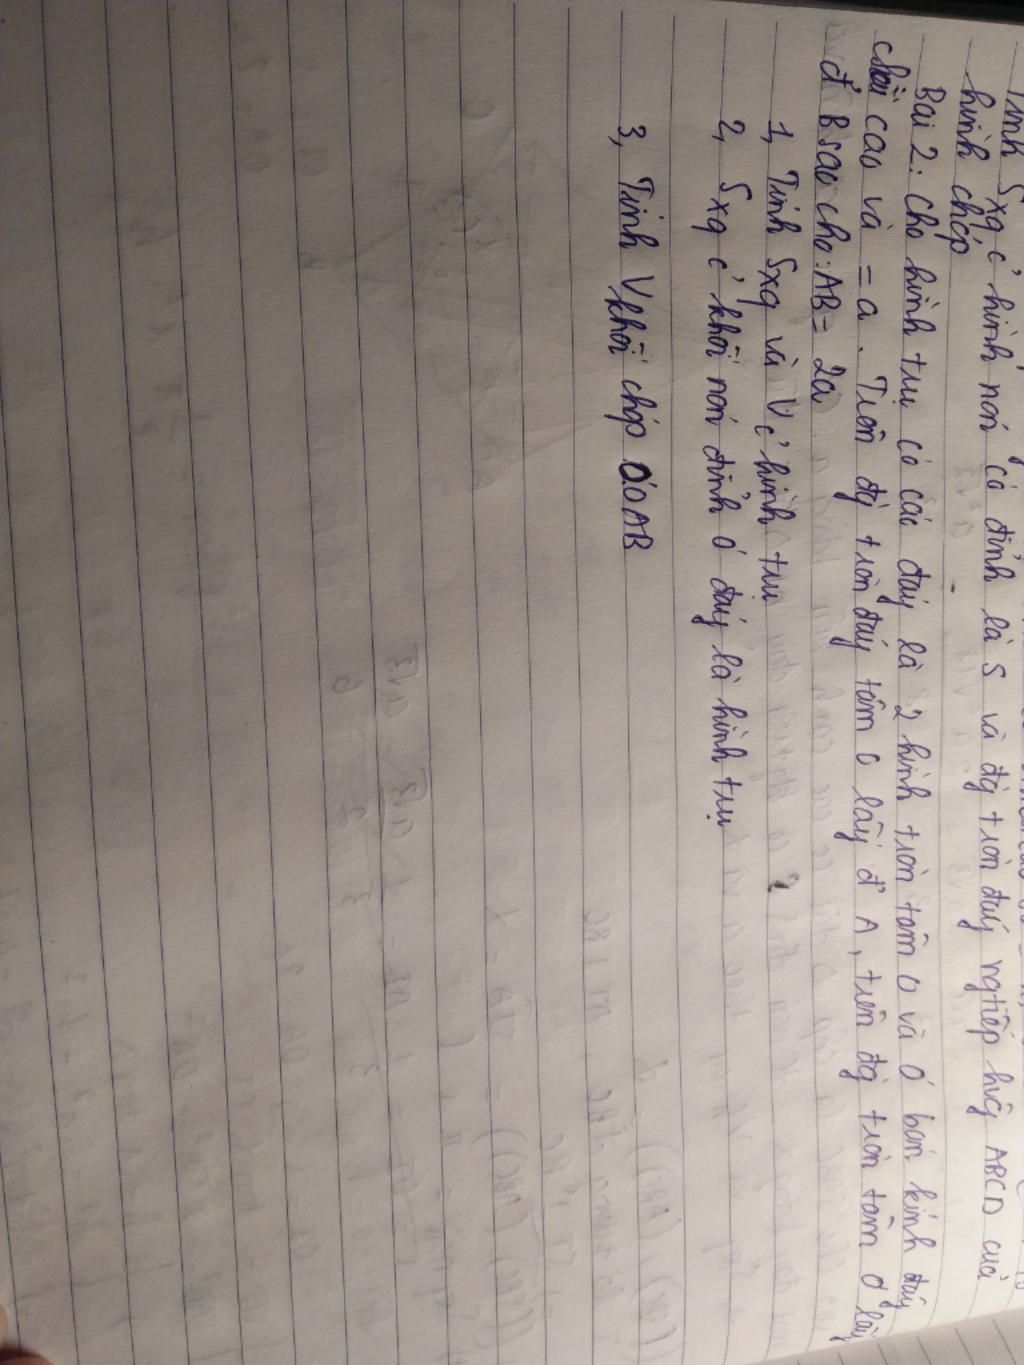 Tính Sxq c' hình nón có đỉnh là S và đg tròn đáy ngtiếp hvg ABCD của
hình chóp
Bài 2: Cho hình trụ có các đáy là 2 hình tròn tâm O và O' bán kính đáy
chiều cao và = a. Trên đg tròn đáy tâm O lấy đ' A, trên đg tròn tâm O' lấy
đ' B sao cho: AB = 2a
1, Tính Sxq và V c' hình trụ
2, Sxq c' khối nón đỉnh O' đáy là hình trụ
3, Tính V khối chóp O'OAB